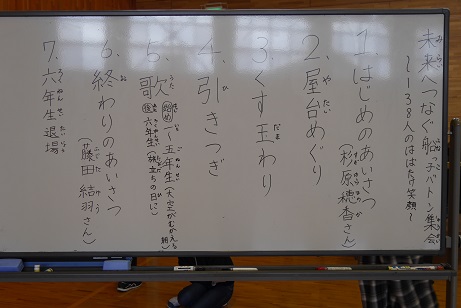 未来へつなぐ船っ子バトン集会
～138人のはばたけ笑顔～
1.はじめのあいさつ
(杉原穂香さん)
2.屋台めぐり
3.くす玉わり
4.引きつぎ
5.歌
一~五年生(大空がむかえる朝)
六年生(旅立ちの日に)
6.終わりのあいさつ
(藤田結羽さん)
7.六年生退場